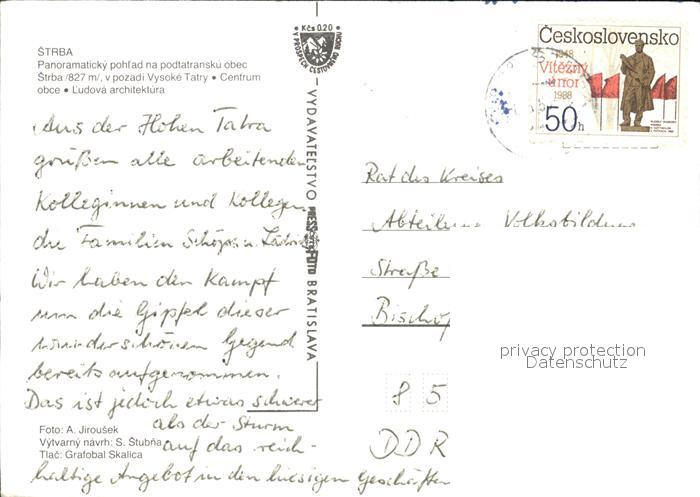 ŠTRBA
Panoramatický pohľad na podtatranskú obec
Štrba /827 m/, v pozadí Vysoké Tatry • Centrum
obce • Ľudová architektúra
Aus der Hohen Tatra
grüßen alle arbeitenden
Kolleginnen und Kollegen
die Familien Schöps u.
Wir haben den Kampf
um die Gipfel dieser
wunderschönen Gegend
bereits aufgenommen.
Das ist jedoch etwas schwerer
als der Sturm
auf das reich-
haltige Angebot in den hiesigen Geschäften
Foto: A. Jiroušek
Výtvarný návrh: S. Štubňa
Tlač: Grafobal Skalica
Kčs 0,20
V PROSPECH CESTOVNÉHO RUCHU
VYDAVATEĽSTVO PRESSFOTO BRATISLAVA
Československo
1948
Vítězný
únor
1988
50h
Rat des Kreises
Abteilung Volksbildung
Straße
Bischof
privacy protection
Datenschutz
8 5
DDR